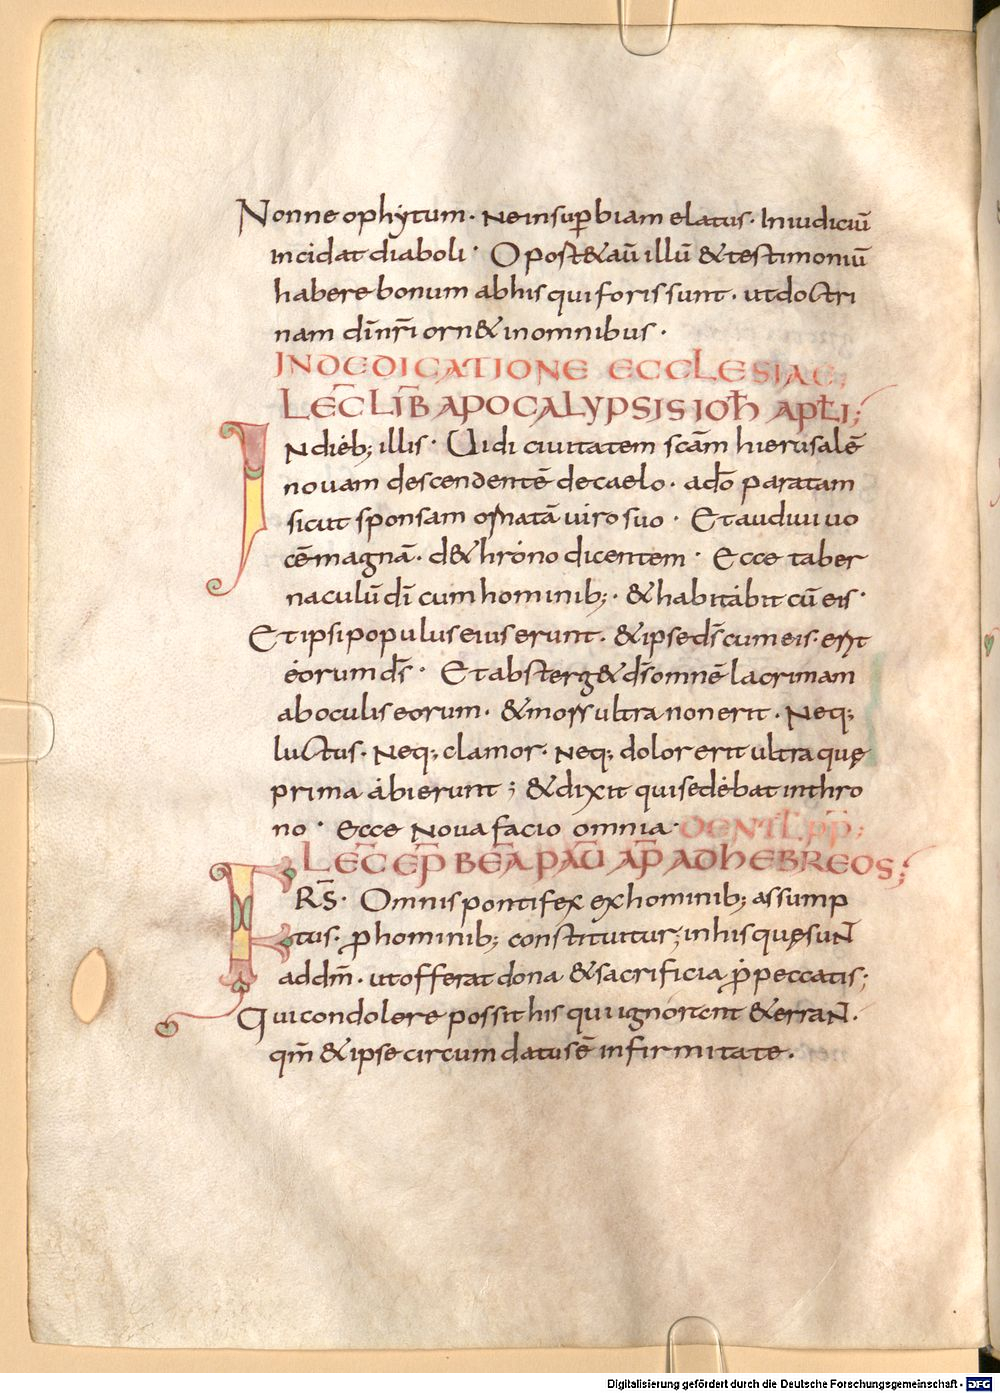 Nonne ophẏtum· Ne insuꝑbiam elatus· In iudiciū
incidat diaboli· Oport&aū illū &testimoniū
habere bonum abhis qui foris sunt· ut doctri
nam dn̄i nr̄i orn& inomnibus·
IN DEDICATIONE ECCLESIAE;
LEC̄ LIB̄ APOCALYPSIS IOH̄ APL̄I;
In dieb; illis· Uidi ciuitatem sc̄am hierusalē
nouam descendentē de caelo· adō paratam
sicut sponsam ornatā uiro suo· Et audiui uo
cē magnā· d&hróno dicentem· Ecce taber
naculū dī cum hominib;· &habitábit cū eis·
Et ipsi populus eius erunt· &ipse ds̄ cum eis· erit
éorum ds̄· Et absterg& ds̄ omnē lacrimam
ab oculis eorum· &mors ultra non erit· Neq;
luctus· Neq; clamor· Neq; dolor erit ultra quę
prima ábierunt; &dixit qui sedébat inthro
no· Ecce Noua facio omnia·
LEC̄ EP̄ BEĀ PAŪ AP̄ AD HEBREOS;
FRS̄· Omnis pontifex exhominib; assump
tus· ꝓ hominib; constituitur; in his quę suN̄
ad dm̄· ut offerat dona &sacrificia ꝓ peccatis;
Qui condolere possit his qui ignorent &erraN̄·
qm̄ &ipse circumdatus ē infirmitate·
Digitalisierung gefördert durch die Deutsche Forschungsgemeinschaft - DFG